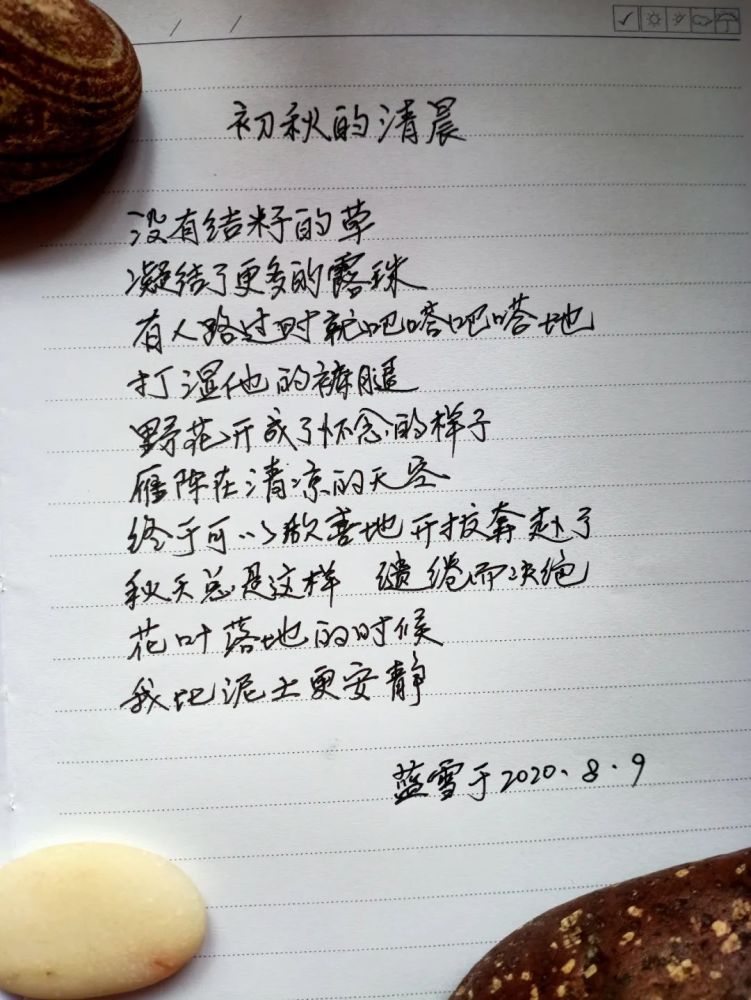 / /
初秋的清晨
没有结籽的草
凝结了更多的露珠
有人路过时就吧嗒吧嗒地
打湿他的裤腿
野花开成了怀念的样子
雁阵在清凉的天空
终于可以欢喜地开拔奔赴了
秋天总是这样 缱绻而决绝
花叶落地的时候
我比泥土更安静
蓝雪于2020.8.9